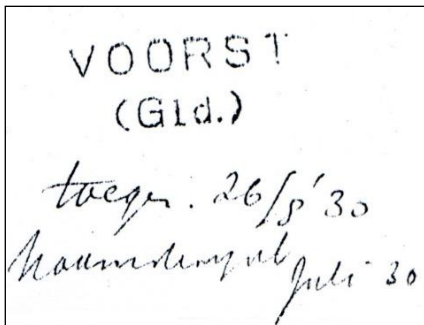 VOORST
(Gld.)
toegez. 26/8 '30
Naamstempel
Juli 30